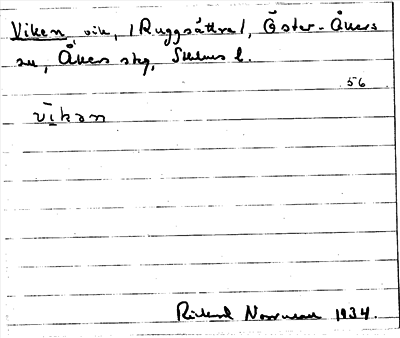 Viken, vik, /Ruggsättra/, Öster-Åkers
sn, Åkers skg, Sthlms l.
56
vīkən
Rickard Norrman 1934.